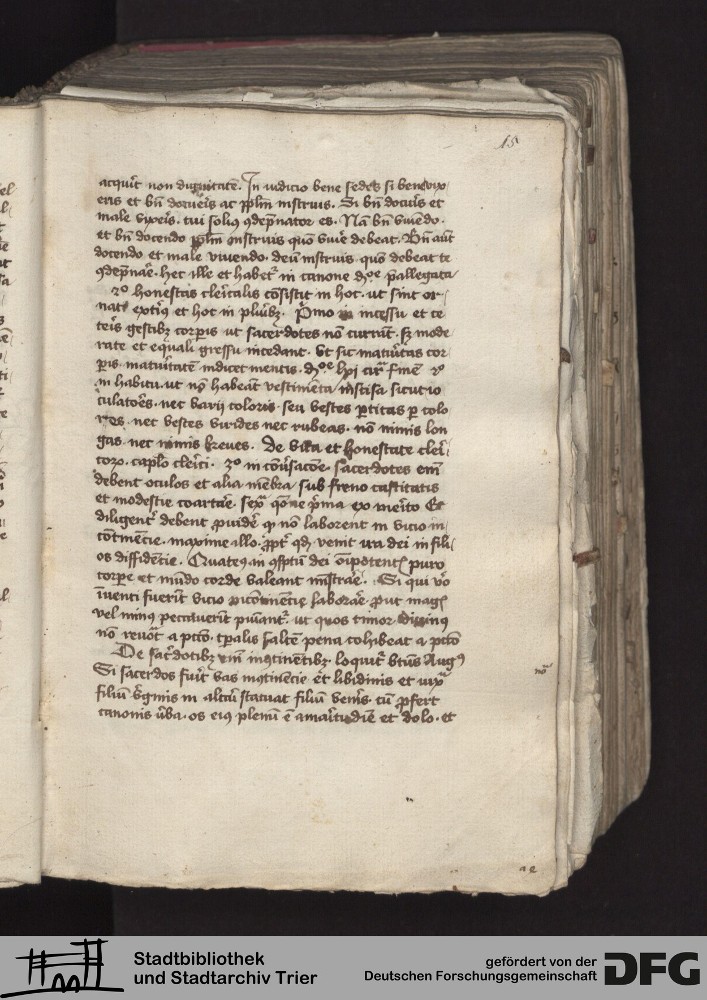 15
acquir̄t non dignitatē. In iudicio bene sedes si bene vix
eris et bn̄ docueris ac pplm̄ instruis. Si bn̄ docuis et
male vixeris. tui solius ꝯdēpnator es. Nā bn̄ viuēdo.
et bn̄ docendo pplm̄ instruis quō viue᷑ debeat. Bn̄ aūt
docendo et male viuendo. deū instruis. quō debeat te
ꝯdēpnāre. hec ille et habet᷑ in canone pallegata
2º honestas clericalis cōsistit in hoc. ut sint or-
nati extius et hoc in plūibꝫ. Pͥmo in incessu et ce
teīs gestibꝫ corpis ut sacerdotes nō currāt. sꝫ mode
rate et equali gressu incedant. Ut sic maturitas cor
pis. maturitatē indicet mentis. 2º
in habitu. ut nō habeāt vestimēta instisa sicut io
culatores. nec varij coloris seu vestes ptitas p colo
res. nec vestes virides nec rubeas. nō nimis lon
gas. nec nimis breues. De vita et honestate cleri
coꝝ. caplo clerici. 3º in cōuersacōe. sacerdotes em̄
debent oculos et alia mēbra sub freno castitatis
et modestie coartare. sexta qōne pͥma ex merito Et
diligent᷑ debent puide᷑ ꝙ nō laborent in vicio in
cōtinēcie. maxime illo. ppt᷑ qd̄ venit ira dei in fili
os diffidēcie. Quatenus in ꝯsptū dei oīpotentis puro
corpe et mūdo corde valeant mistrare. Si qui vo
inuenti fuerīt vicio incontinēcie laborare. put magis
vel minus peccauerīt puniant᷑. ut quos timor diuinus
nō reuocat a pctō. tpalis saltē pena cohibeat a pctō
De sacdotibꝫ incontinētibꝫ loquit᷑ btūs Augꝰ
Si sacerdos fuit vas inꝯtinēcie et libidinis et vix
filiū virginis in altari statuat filiū veneris. cū pfert
canonis v̄ba. os eiꝰ plenū ē amaritudīe et dolo. et
nō